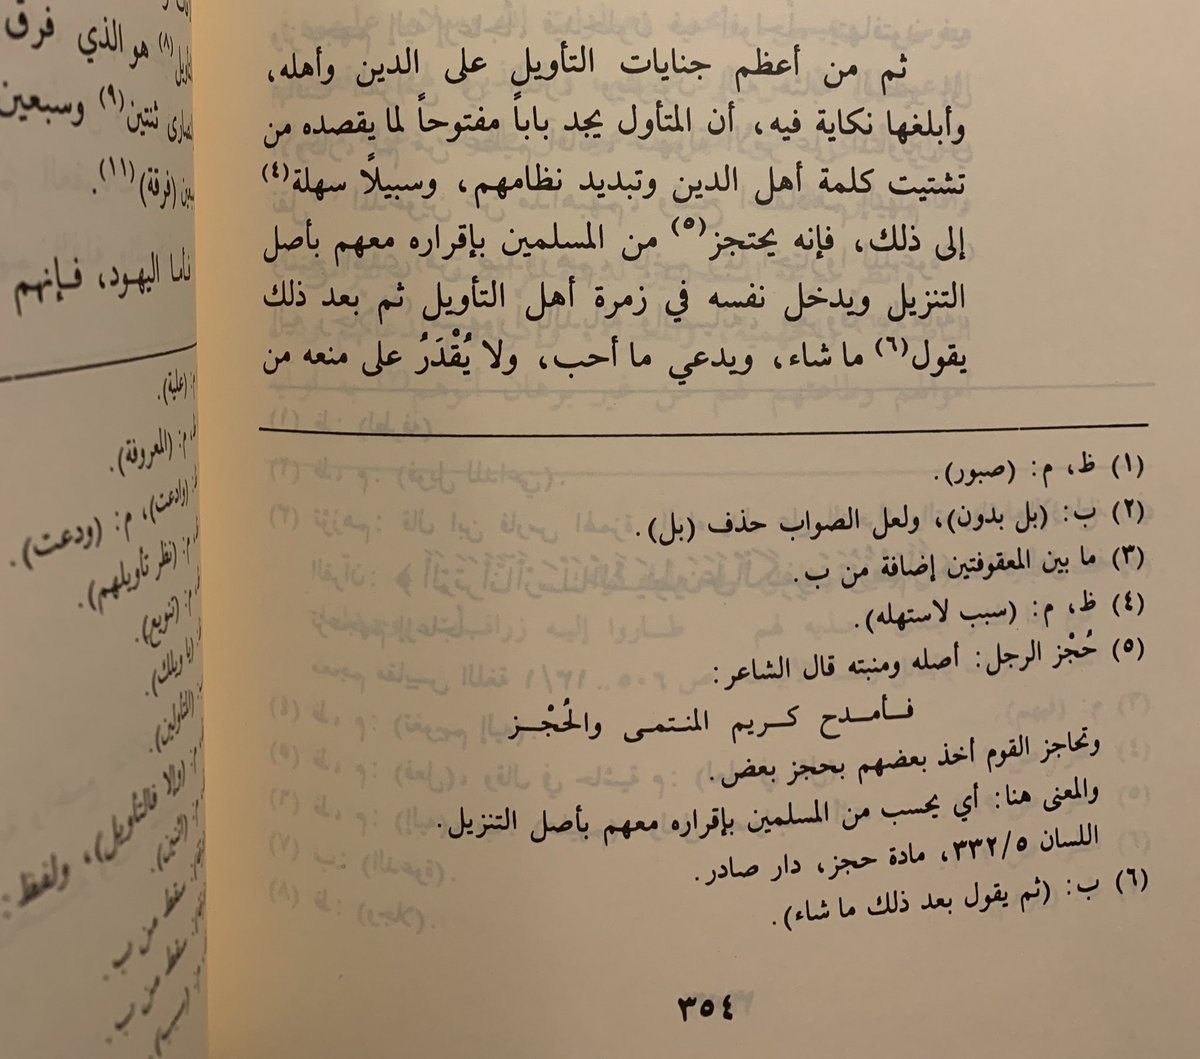 ثم من أعظم جنايات التأويل على الدين وأهله،
وأبلغها نكاية فيه، أن المتأول يجد باباً مفتوحاً لما يقصده من
تشتيت كلمة أهل الدين وتبديد نظامهم، وسبيلاً سهلة(٤)
إلى ذلك، فإنه يحتجز(٥) من المسلمين بإقراره معهم بأصل
التنزيل ويدخل نفسه في زمرة أهل التأويل ثم بعد ذلك
يقول(٦) ما شاء، ويدعي ما أحب، ولا يُقْدَرُ على منعه من
(١) ظ، م: (صبور).
(٢) ب: (بل بدون)، ولعل الصواب حذف (بل).
(٣) ما بين المعقوفتين إضافة من ب.
(٤) ظ، م: (سبب لاستهله).
(٥) حُجْز الرجل: أصله ومنبته قال الشاعر:
فـأمـدح كـريم المنـتمـى والحُجْـز
وتحاجز القوم أخذ بعضهم بحجز بعض.
والمعنى هنا: أي يحسب من المسلمين بإقراره معهم بأصل التنزيل.
اللسان ٣٣٢/٥، مادة حجز، دار صادر.
(٦) ب: (ثم يقول بعد ذلك ما شاء).
٣٥٤
(٨) هو الذي فرق
ثنتين(٩) وسبعين
(فرقة)(١١).
اليهود، فـإنهم
(علية).
م: (المعروفة).
(وادعت)، م: (ودعت).
م: (نظر تأويلهم).
(تنويع).
(يا ويلك).
(المتأولين).
(وإلا فالتأويل)، ولفظ:
سقط من ب.
سقط من ب.